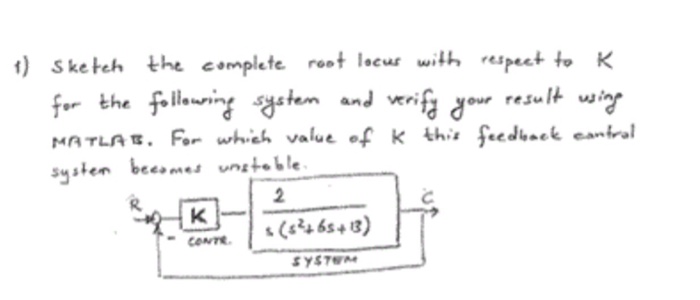 1) Sketch the complete root locus with respect to K
for the following system and verify your result using
MATLAB. For which value of K this feedback control
system becomes unstable.
R
K
CONTR.
-
2
s (s²+6s+13)
SYSTEM
C